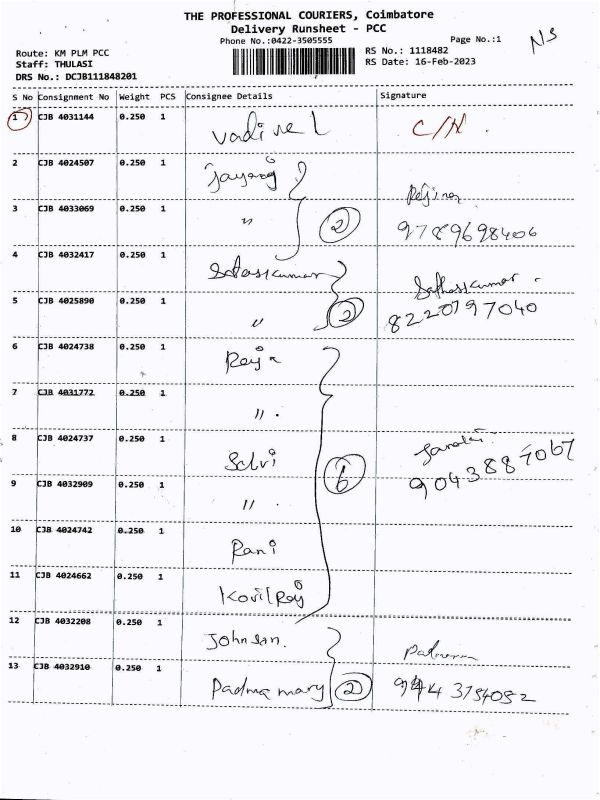 THE PROFESSIONAL COURIERS, Coimbatore
Delivery Runsheet - PCC
Phone No.:0422-3505555
Page No.:1
NS
Route: KM PLM PCC
Staff: THULASI
DRS No.: DCJB111848201
RS No.: 1118482
RS Date: 16-Feb-2023
S No Consignment No Weight PCS Consignee Details Signature
1 CJB 4031144 0.250 1 Vadivel C/N.
2 CJB 4024507 0.250 1 Jayaraj
3 CJB 4033069 0.250 1 " 2 9789698406
4 CJB 4032417 0.250 1 Sathaskumar
5 CJB 4025890 0.250 1 " 2 8220797040
6 CJB 4024738 0.250 1 Raja
7 CJB 4031772 0.250 1 ".
8 CJB 4024737 0.250 1 Selvi 6
9 CJB 4032909 0.250 1 ". 9043887067
10 CJB 4024742 0.250 1 Rani
11 CJB 4024662 0.250 1 KovilRaj
12 CJB 4032208 0.250 1 Johnson.
13 CJB 4032910 0.250 1 Padma mary 2